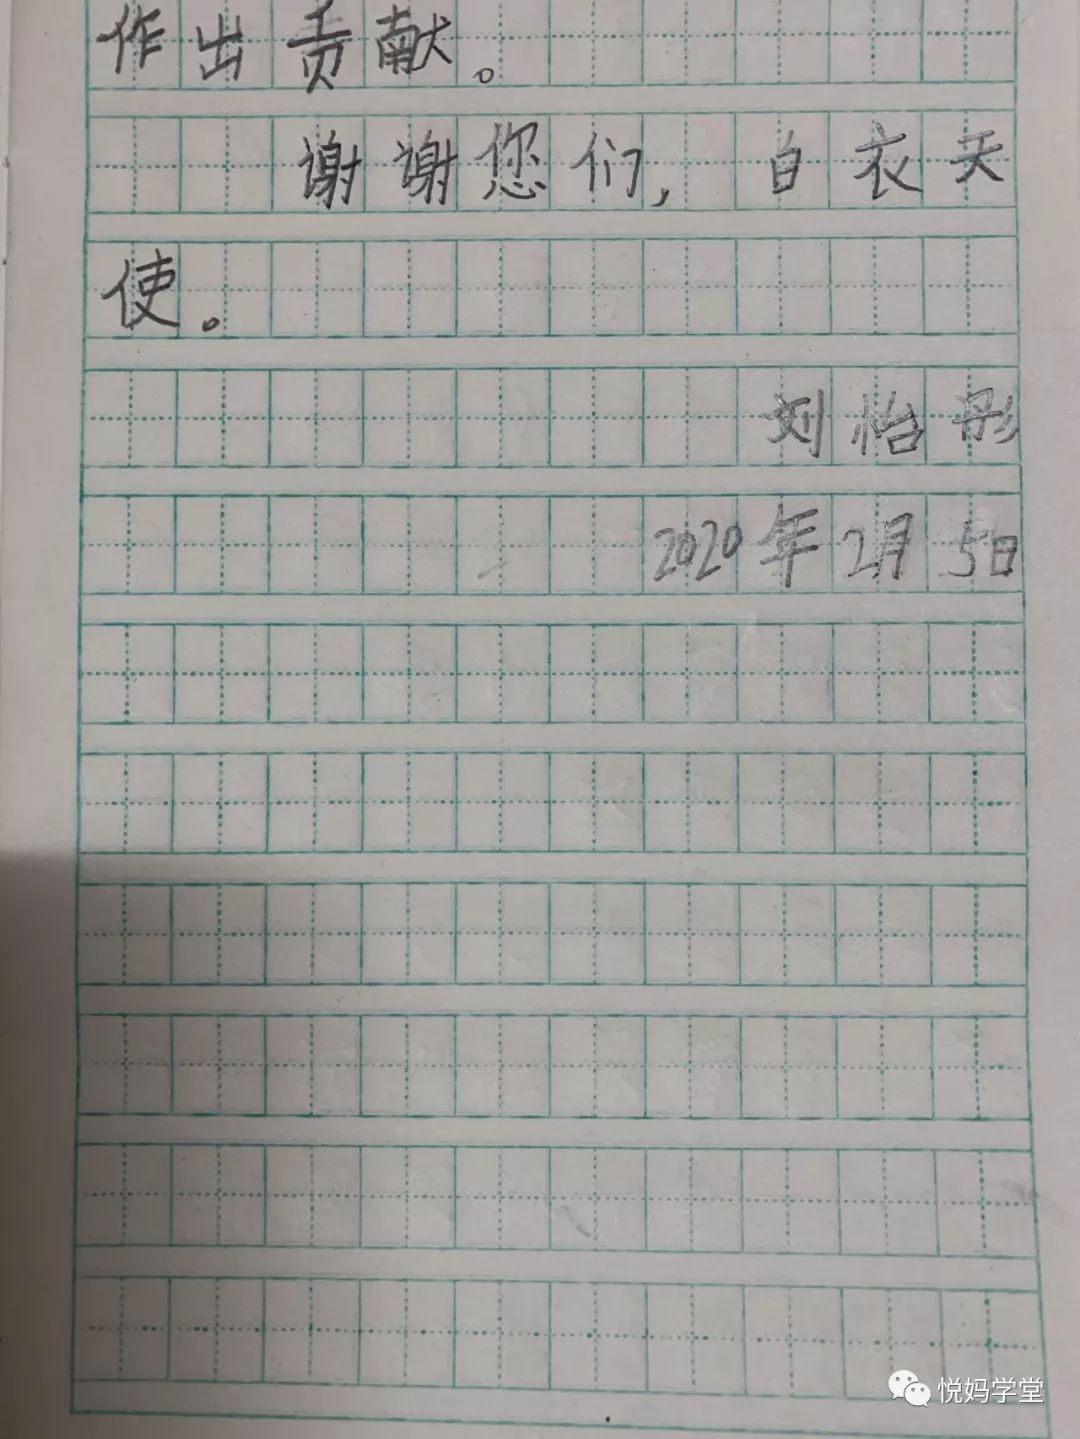 作出贡献。
谢谢您们,白衣天
使。
刘怡彤
2020年2月5日
悦妈学堂